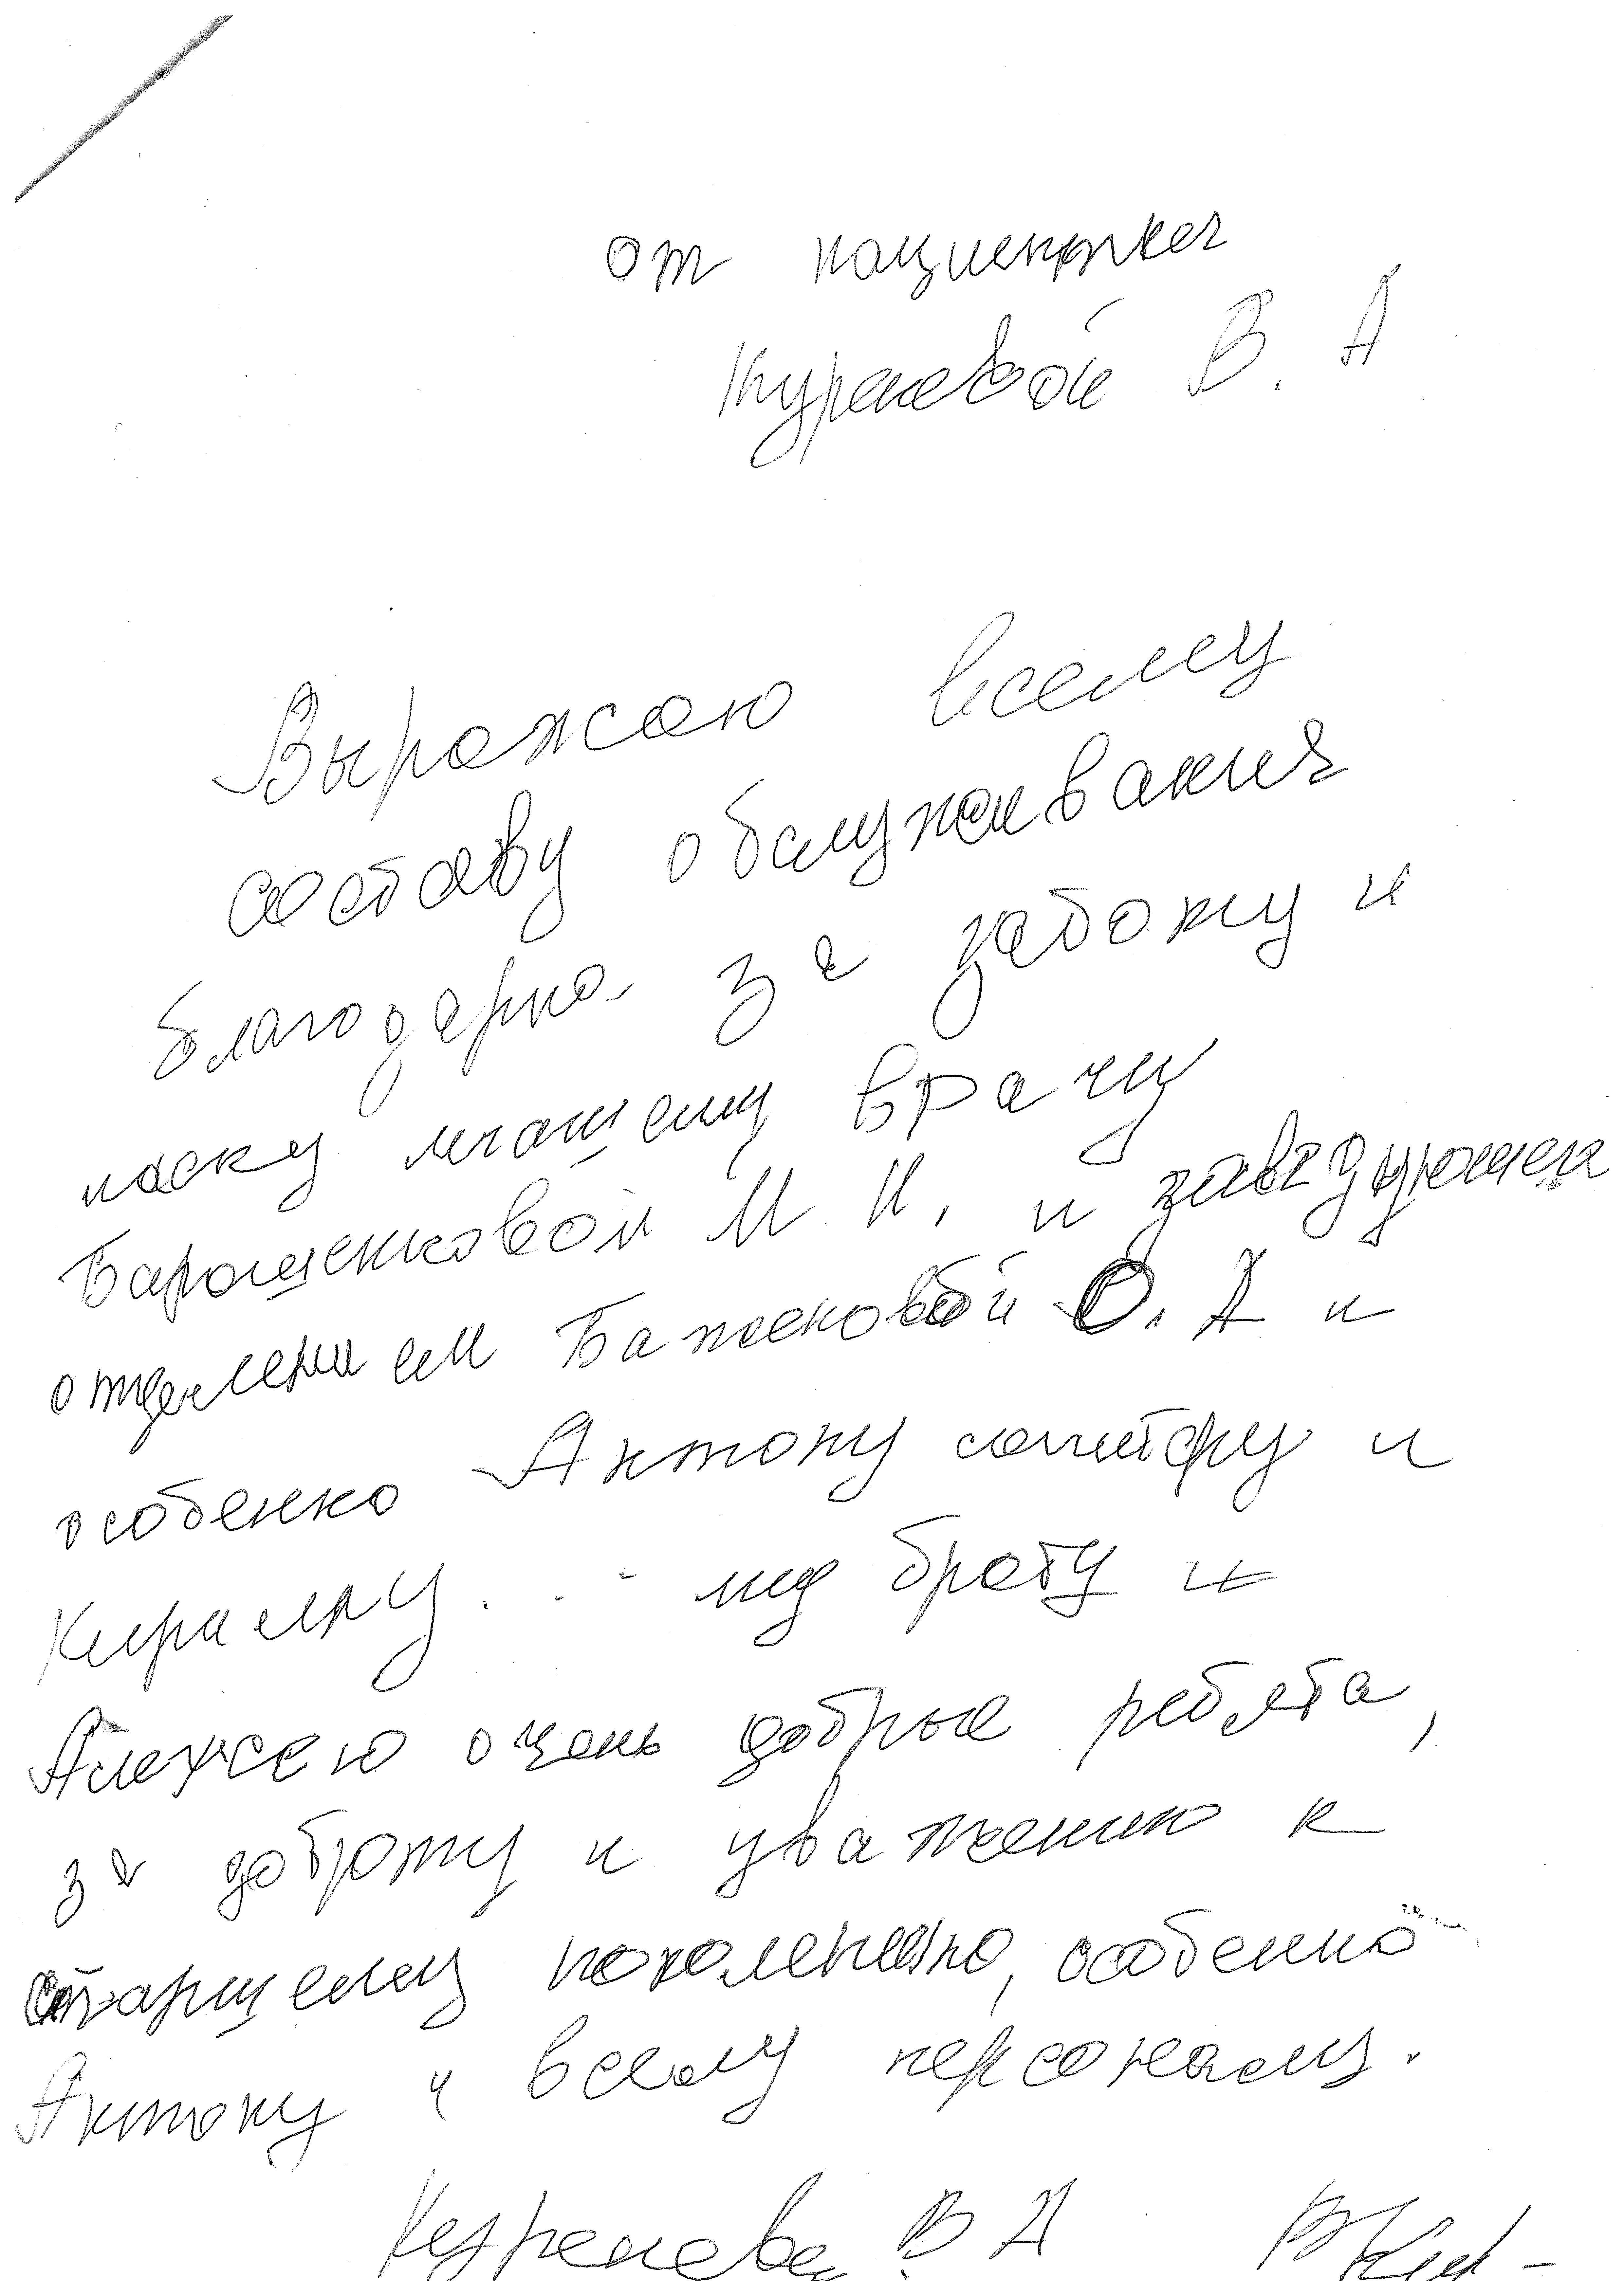 от пациентка
Кураевой В. А
Выражаю всему
составу обслуживания
благодарна за заботу и
ласку лечащему врачу
Барашенковой М. И, и завздующей
отделением Баженовой О. А и
особенно Антону соцработ и
Кириллу . . - мед брату и
Алексею очень добрые ребята,
за доброту и уважению к
старшему поколению, особенно
Антону и всему персоналу.
Кураева В А